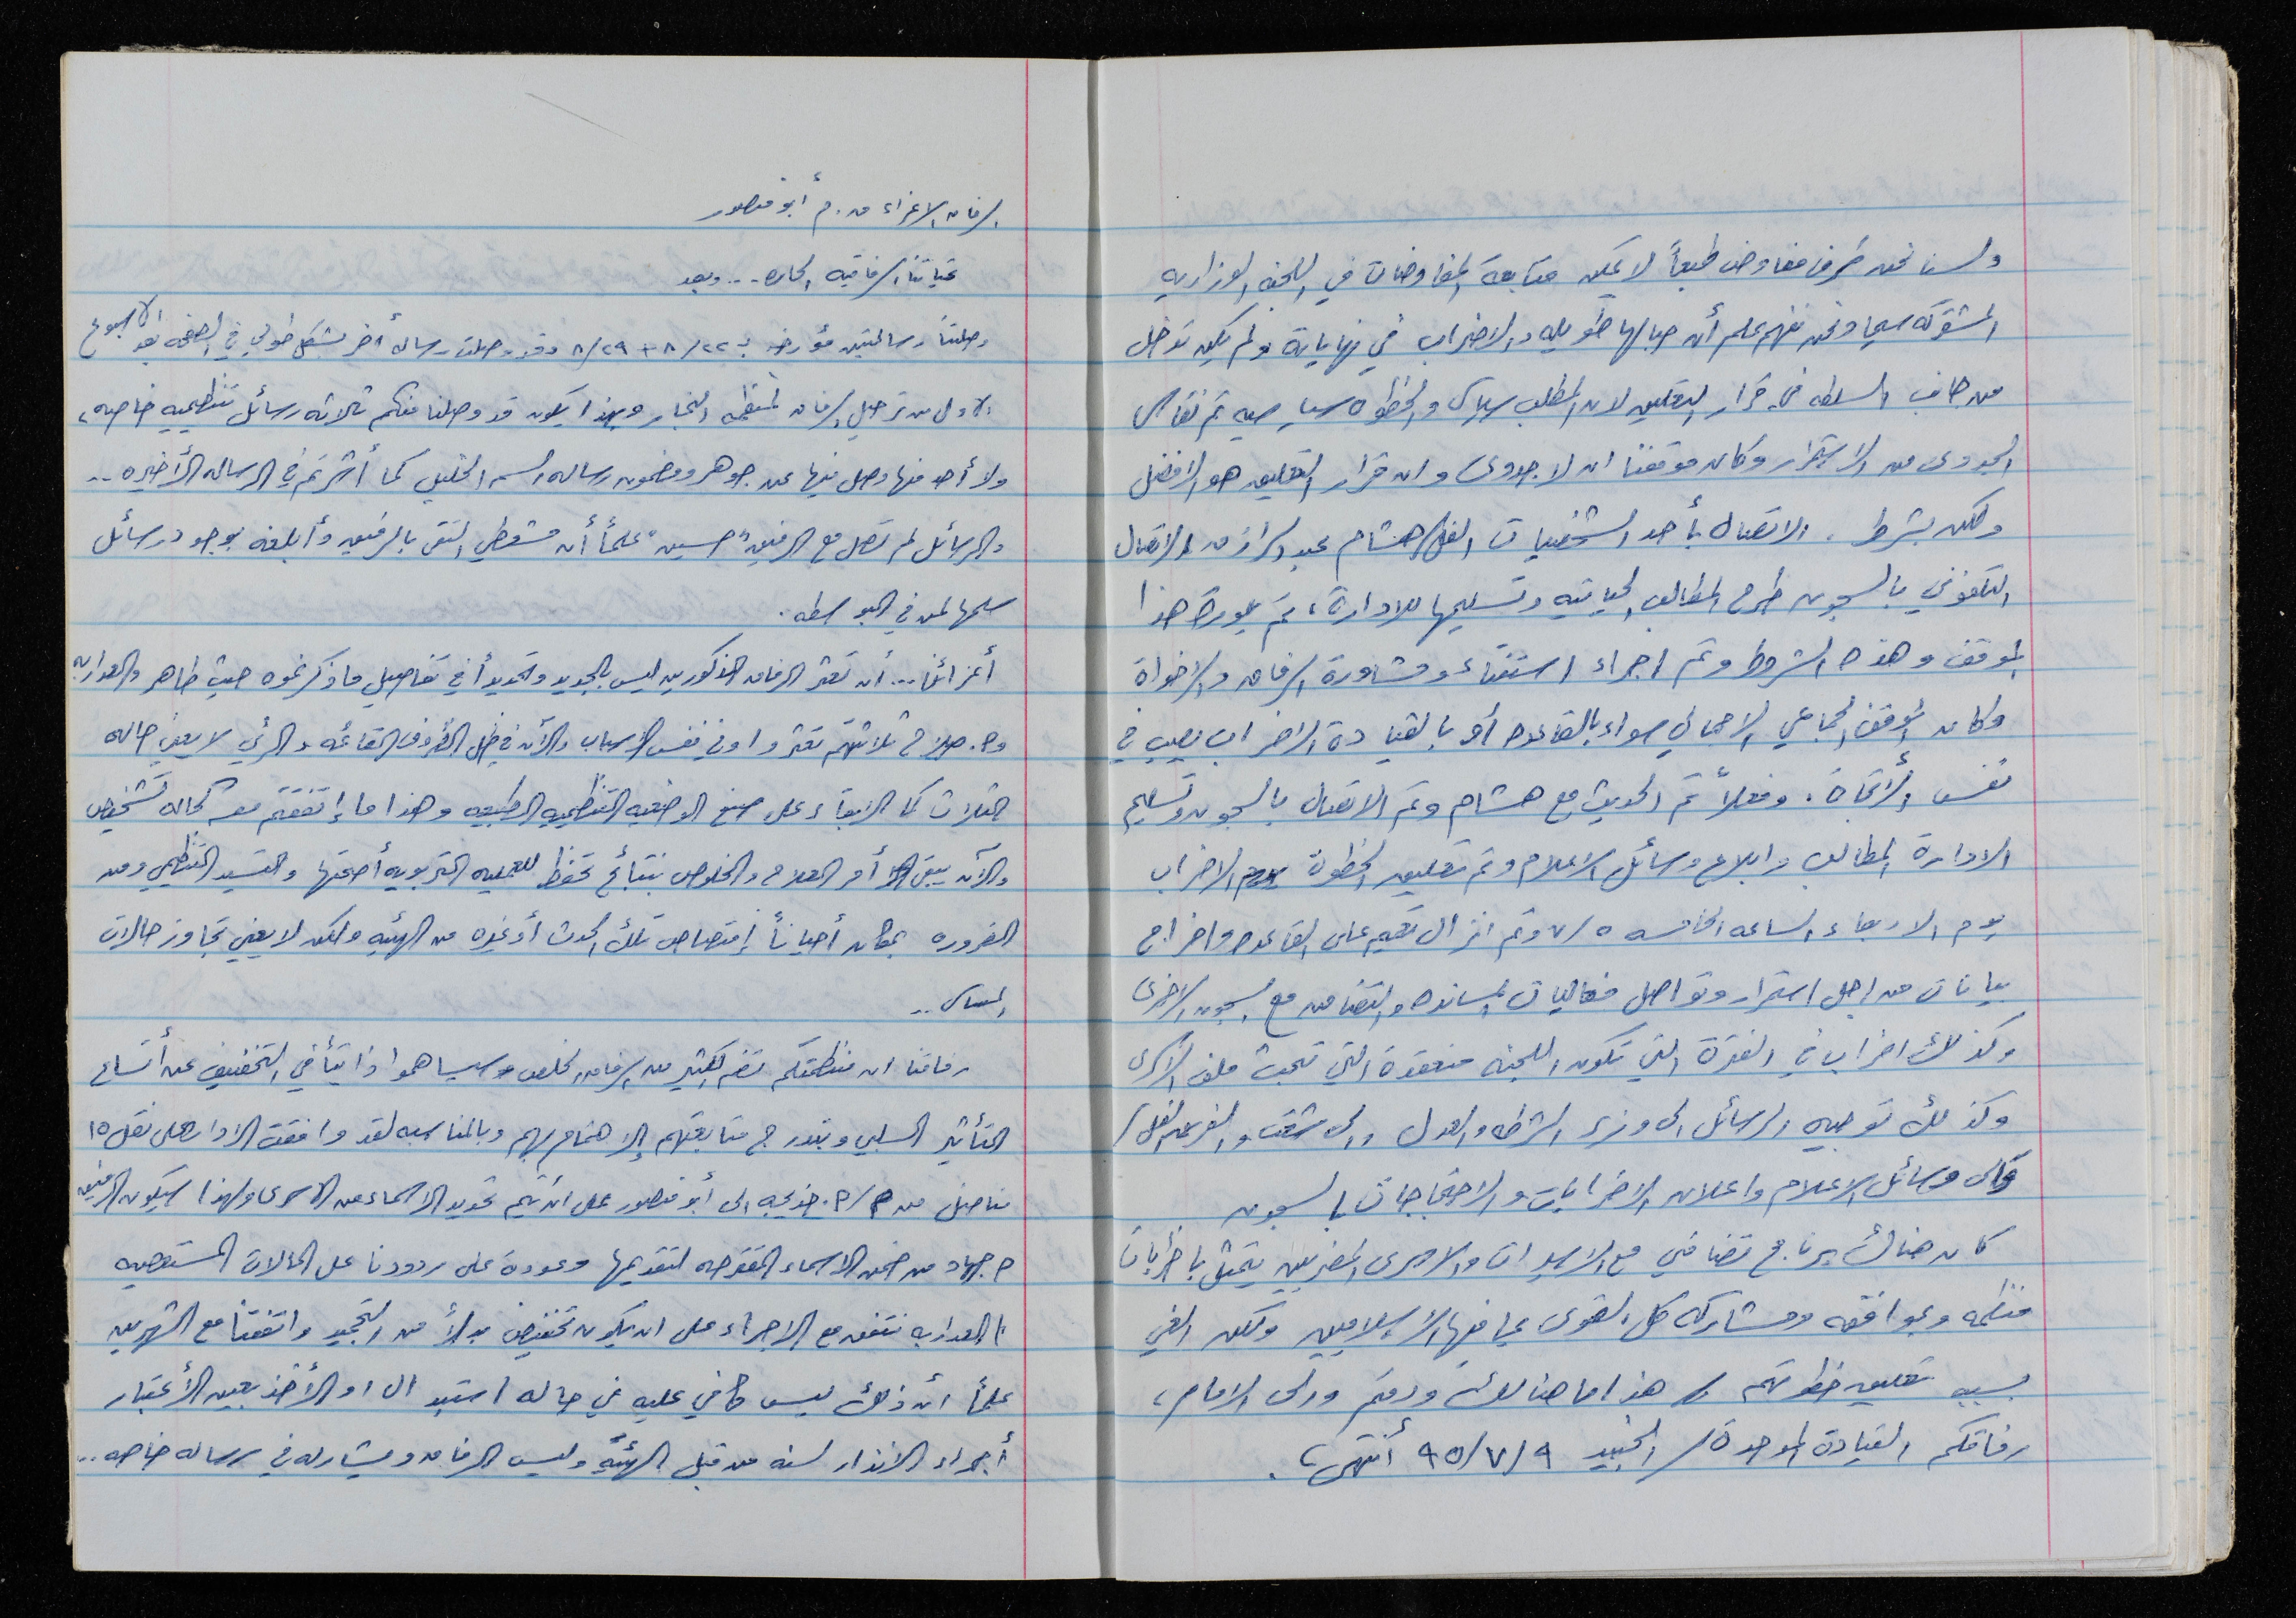 ولسنا نحن طرف مفاوض طبعاً لا يمكن متابعة المفاوضات في اللجنه الوزاريه
المشتركه سيما ونحن نفهم علم أن حبالها طويله والاضراب في نهاياته ولم يكن تدخل
من جانب السلطه في قرار التعليق لان المطلب سياسي والخطوه سياسيه تم نقاش
الجدوى من الاستمرار وكان موقفنا ان لا جدوى وان قرار التعليق هو الافضل
ولكن بشرط. الاتصال بأحد الشخصيات الفل/هشام عبد الرازق الاتصال
التلفوني بالسجون طرح المطالب الحياتيه وتسليمها للادارة، تم بلورة هذا
الموقف وهذه الشروط وتم اجراء استفتاء ومشاورة الرفاق والاخوة
وكان الموقف الجماعي الاجمالي سواء بالقاعده أو بالقيادة الاضراب يصب في
نفس الأتجاة. وفعلاً تم الحديث مع هشام وتم الاتصال بالسجون وتسليم
الادارة المطالب وابلاع وسائل الاعلام وتم تعليق الخطوة الاضراب
يوم الاربعاء الساعه الخامسه ٧/٥ وتم انزال تعميم على القاعده واخراج
بيانات من اجل استمرار وتواصل فعاليات المسانده والتضامن مع السجون الاخرى
وكذلك اضراب في الفترة التي تكون اللجنه منعقدة التي تبحث ملف الاسرى
وكذلك توجيه الرسائل الى وزير الشرطه والعدل والى الفل/
والى وسائل الاعلام واعلان الاضرابات والاحتجاجات بالسجون
كان هنالك برنامج تضامني مع الاسيرات والاسرى المضربين يتمثل باضرابات
منظمه وبموافقه ومشاركه كل القوى بما فيها الأسلاميين ولكن الغي
بسبب تعليق خطوتهم / هذا ما هنالك ودمتم والى الامام،
رفاقكم القيادة الموحدة/ الجنيد ٩٥/٧/٩ أنتهى،.
الرفاق الاعزاء م.م أبو منصور
تحياتنا الرفاقيه الحاره... وبعد
وصلتنا رسالتين مؤرخه بـ ٨/٢٢ + ٨/٢٩ وقد وصلت رساله أخر بشكل طولي في الصفحه بعد الاسبوع
الاول من ترحيل الرفاق لمنظمه النجار وبهذا يكون قد وصلنا منكم ثلاثه رسائل تنظيميه خاصه،
ولا أحد منها وصل فيها عن جوهر ومضمون رساله اسم الخليل كما أشرتم في الرساله الأخيره..
والرسائل لم تصل مع الرفيق "حسين" علماً أن مشعطي التقى بالرفيق وأبلغه بوجود رسائل
سلمها لمن في البوسطه.
أعزائنا... أن تعثر الرفاق المذكورين ليس بالجديد وتحديداً في تفاصيل ما ذكرتموه حيث طاهر والعداربه
وم. صلاح ثلاثتهم تعثروا وفي نفس الاسباب والآن في ظل الظروف القائمه والرئي لا يعني حاله
الثلاث كما الابقاء على صيغ الوضعيه التنظيميه الطبيعيه وهذا ما إتفقتم معه كحاله تشخيص
والآن يبقى أمر العلاج والخلوص بنتبائج تحفظ للعمليه التربويه أصحتها والتسيد التنظيمي ومن
الضروره بمكان أحياناً إمتصاص تلك الحدث أو غيره من الهيئه ولكن لا يعني تجاوز حالات
المساس..
رفاقنا ان منظمتكم تضم الكثير من الرفاق الخلص وسيساهموا ذاتياً في التخفيف عن أتساع
التأثير السلبي ويندرج متابعتهم إلاهتمام بهم وبالمناسبه لقد وافقت الاداره على نقل ١٥
مناضل من م/م. خديجه الى أبو منصور على ان يتم تحديد الاسماء من الاسرى ولهذا سيكون الرفيق
م جهاد من ضمن الاسماء المقترحه لتقديمها وعودة على ردودنا على الحالات المستعصيه
١) العداربه نتفق مع الاجراء على ان يكون تخفيض بدلاً من التجميد واتفقنا مع الشهرين
علماً أن ذلك ليس كافي عليه في حاله استبدال او الأخذ بعين الأعتبار
أجراء الانذار لسنه من قبل الهيئه وليس الرفاق ويشارله في رساله خاصه..